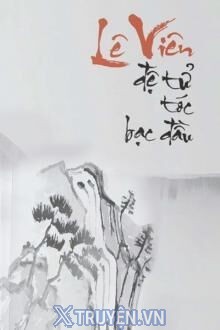 Lê Viên
đệ tử
tóc
bạc đầu
XTRUYỆN.VN